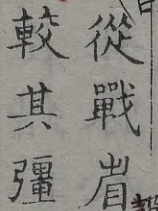 從戰
較其彊